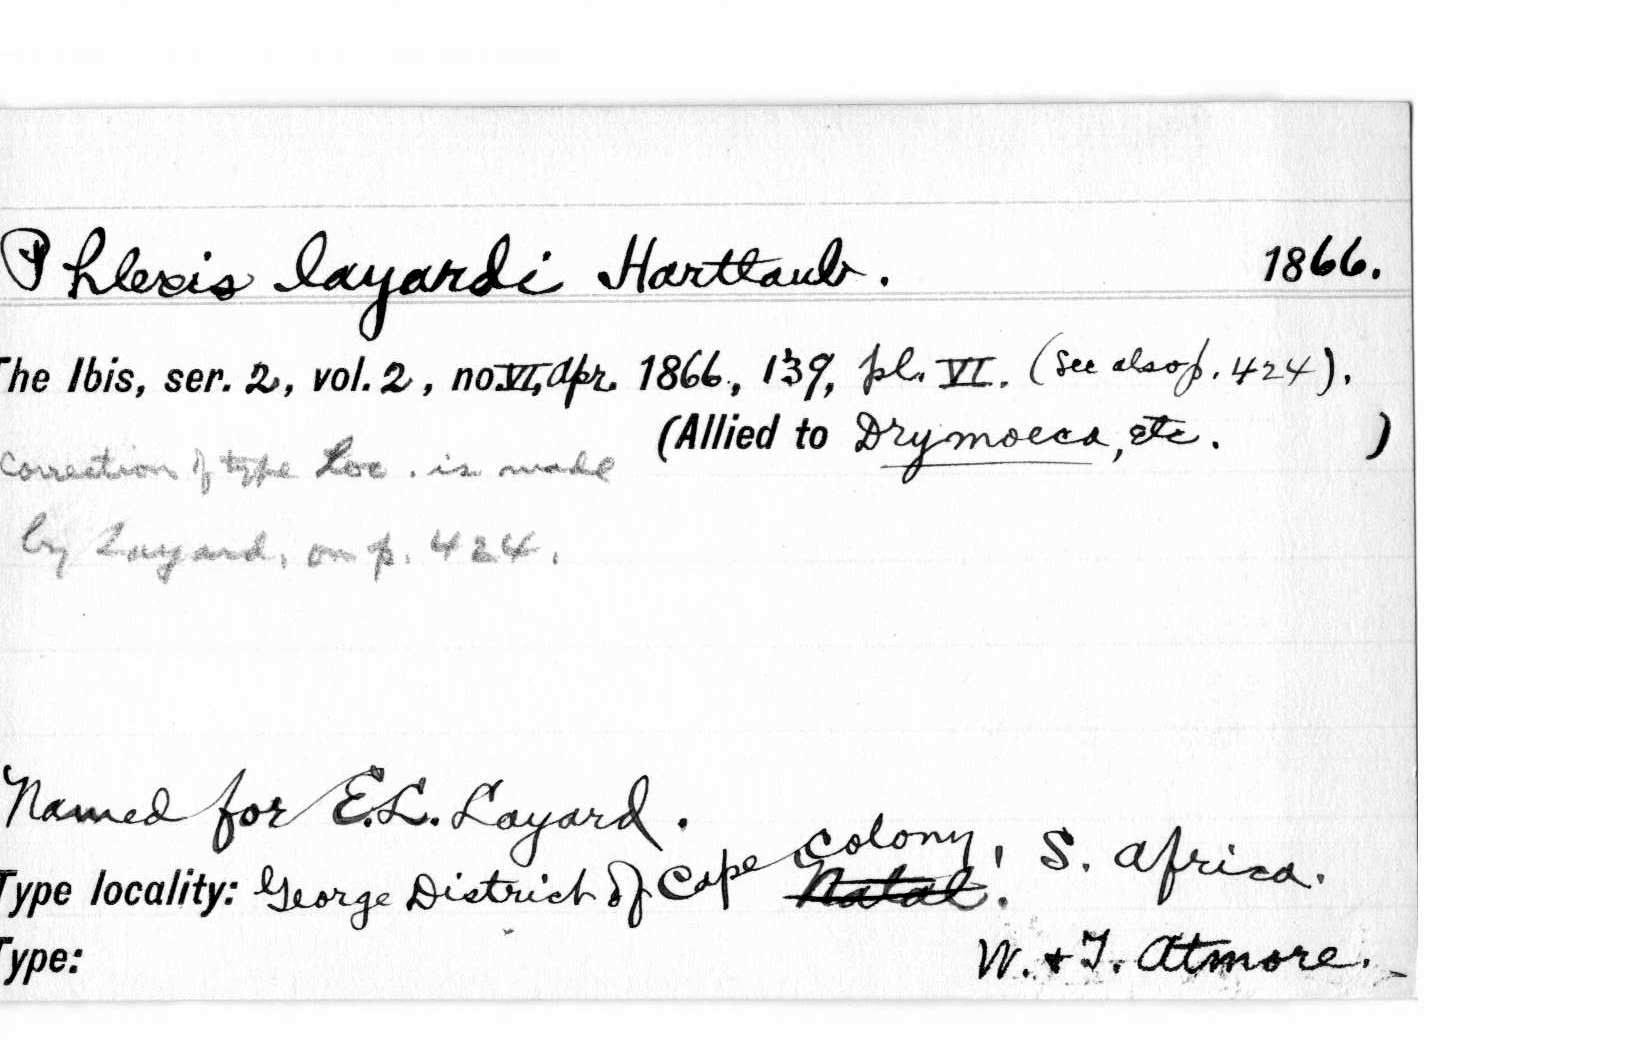 Phlexis layardi Hartlaub. 1866.
The Ibis, ser. 2, vol. 2, no. VI, Apr. 1866, 139, pl. VI. (See also p. 424).
(Allied to Drymoeca, etc. )
Correction of type Loc. is made
by Layard, on p. 424.
Named for E.L. Layard.
Type locality: George District of Cape Colony, Natal. S. Africa.
Type: W. & T. Atmore.